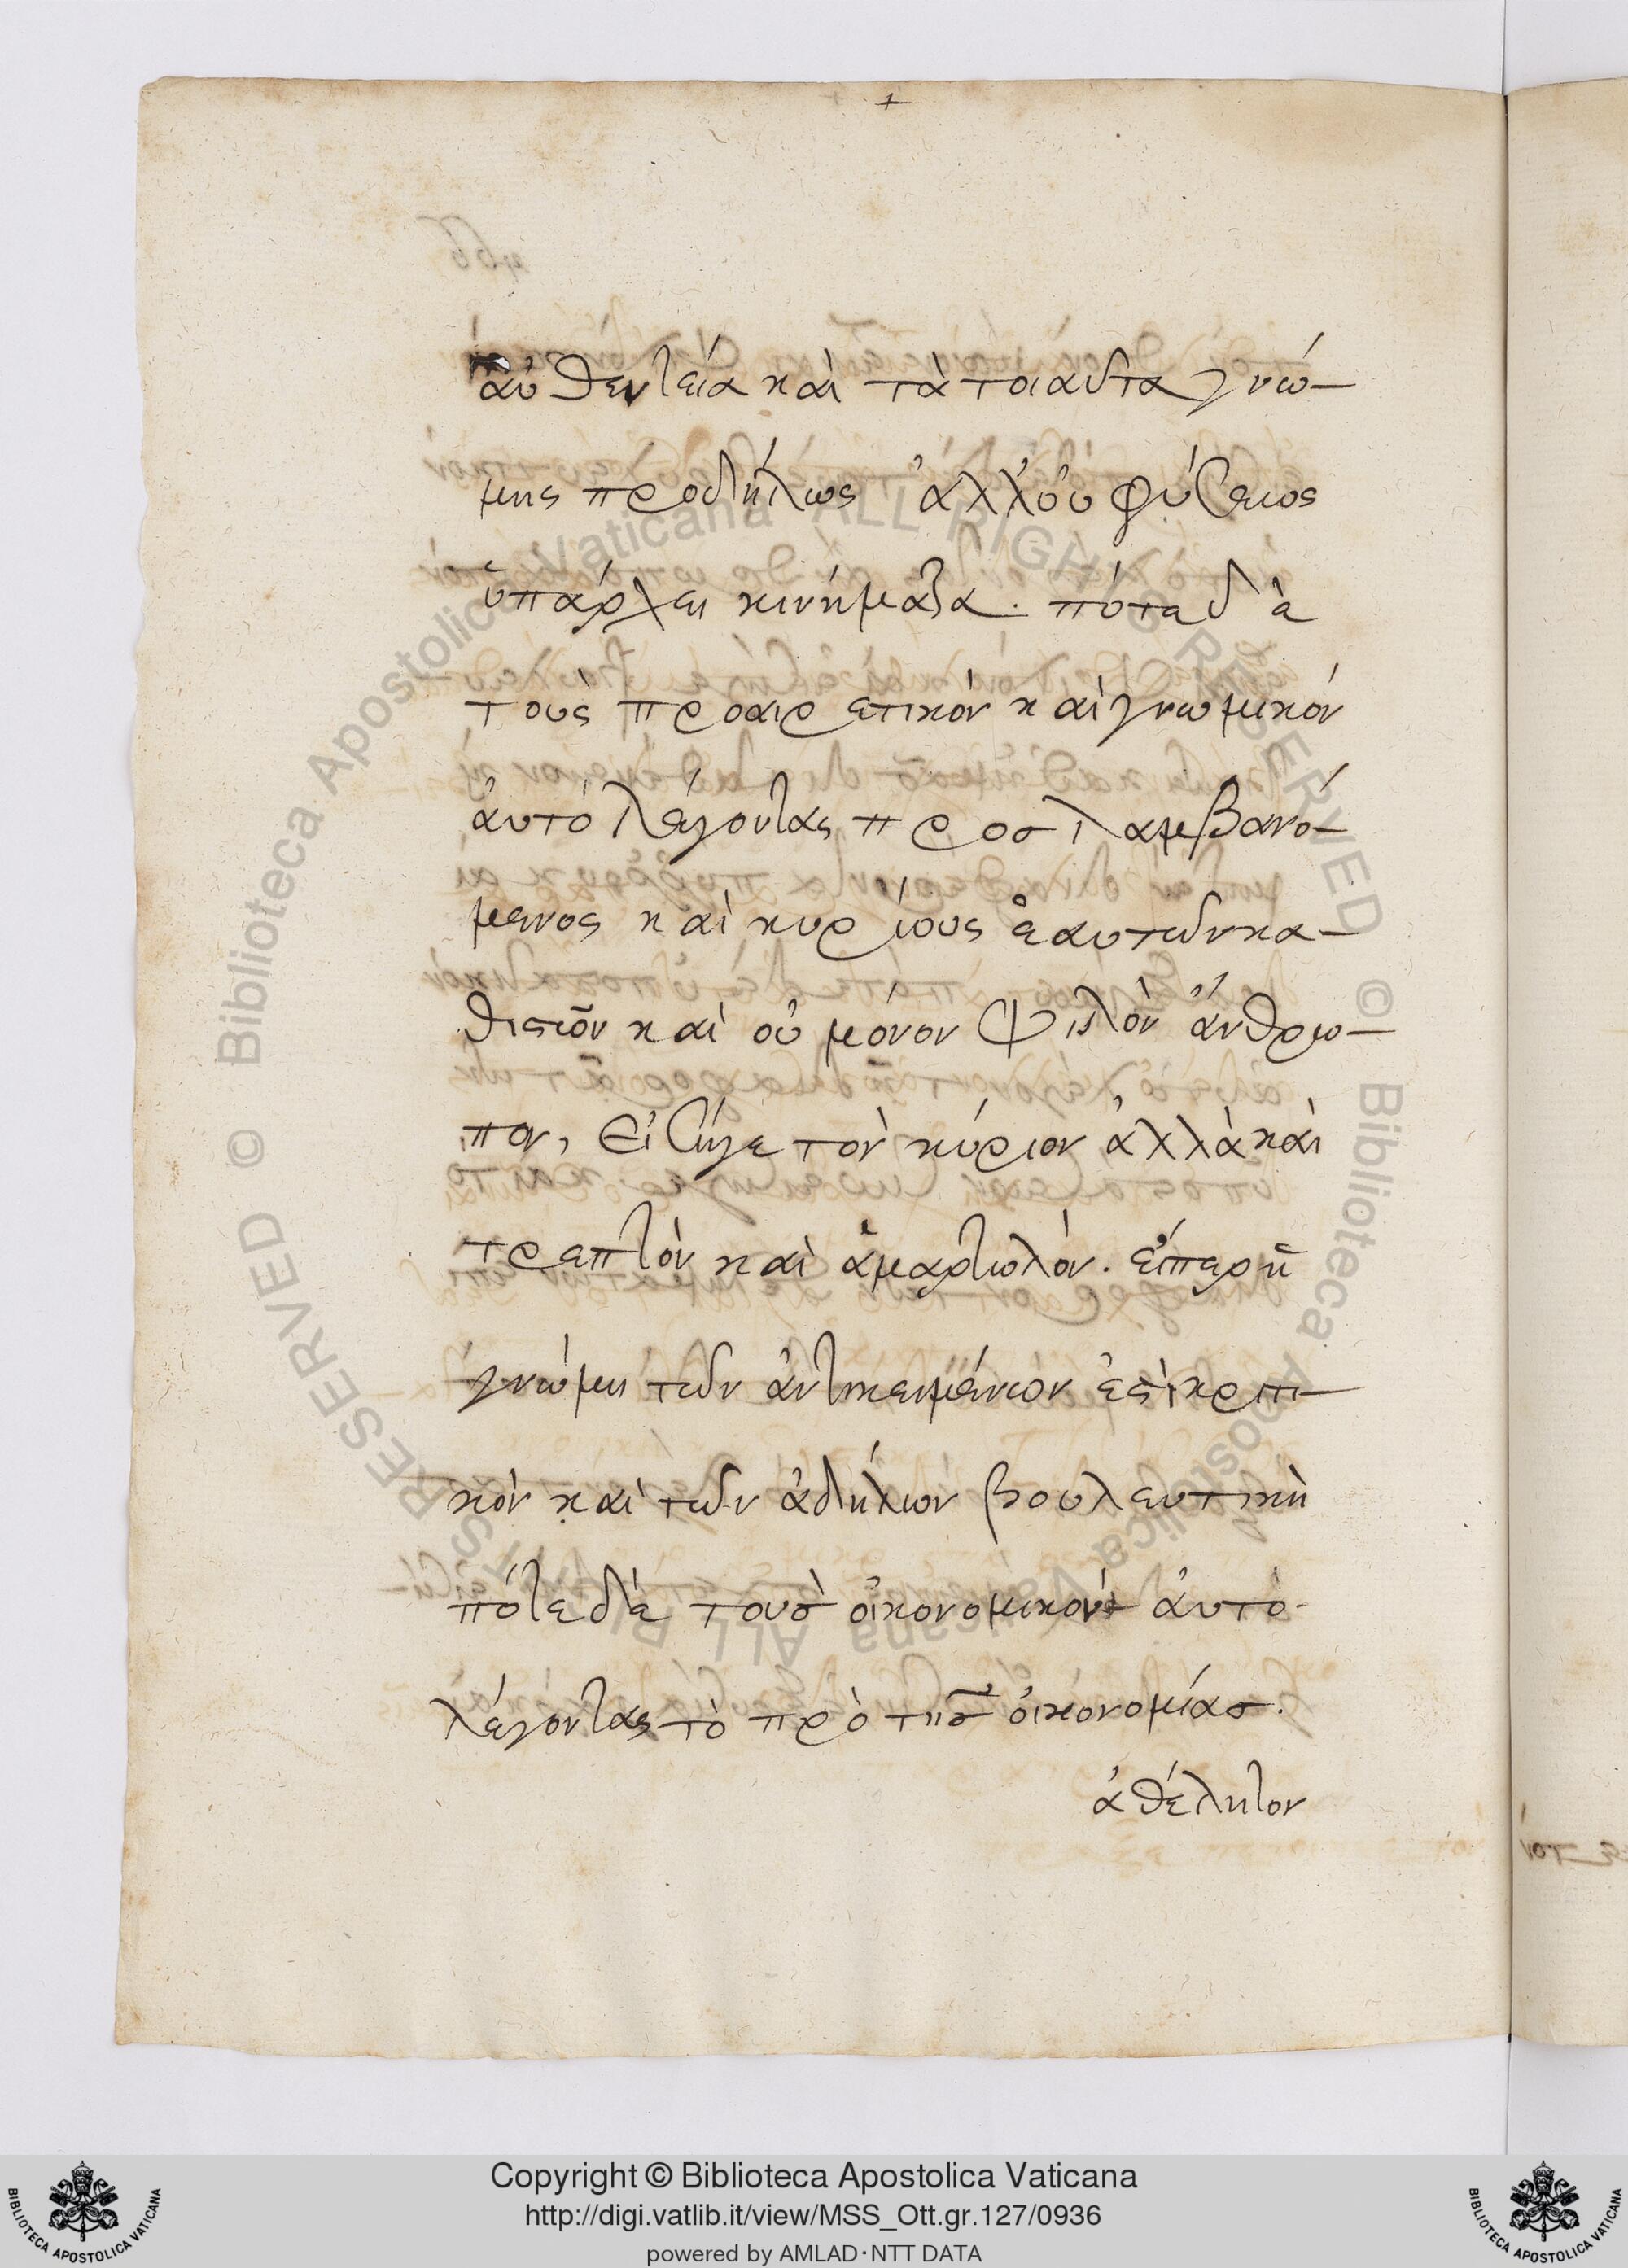 αὐθεντεία καὶ τὰ τοιαῦτα γνώ-
μης προδήλως ἀλλ' οὐ φύσεως
ὑπάρχει κινήματα. πότε δὲ
τοὺς προαιρετικὸν καὶ γνωμικόν
αὐτὸ λέγοντας προσλαμβανό-
μενος καὶ κυρίους ἑαυτῶν κα-
θιστῶν καὶ οὐ μόνον ψιλὸν ἄνθρω-
πον, εἰσῆγε τὸν κύριον ἀλλὰ καὶ
τρεπτὸν καὶ ἁμαρτωλόν. εἴπερ ἡ
γνώμη τῶν ἀντικειμένων ἐστὶ κριτι-
κὸν καὶ τῶν ἀδήλων βουλευτικὴ
πότε δὲ τοὺσ οἰκονομικὸν αὐτὸ
λέγοντας τὸ πρὸ τῆσ οἰκονομίασ.
ἀθέλητον
© Biblioteca Apostolica Vaticana ALL RIGHTS RESERVED
© Biblioteca Apostolica Vaticana ALL RIGHTS RESERVED
Copyright © Biblioteca Apostolica Vaticana
http://digi.vatlib.it/view/MSS_Ott.gr.127/0936
powered by AMLAD·NTT DATA
BIBLIOTECA APOSTOLICA VATICANA
BIBLIOTECA APOSTOLICA VATICANA